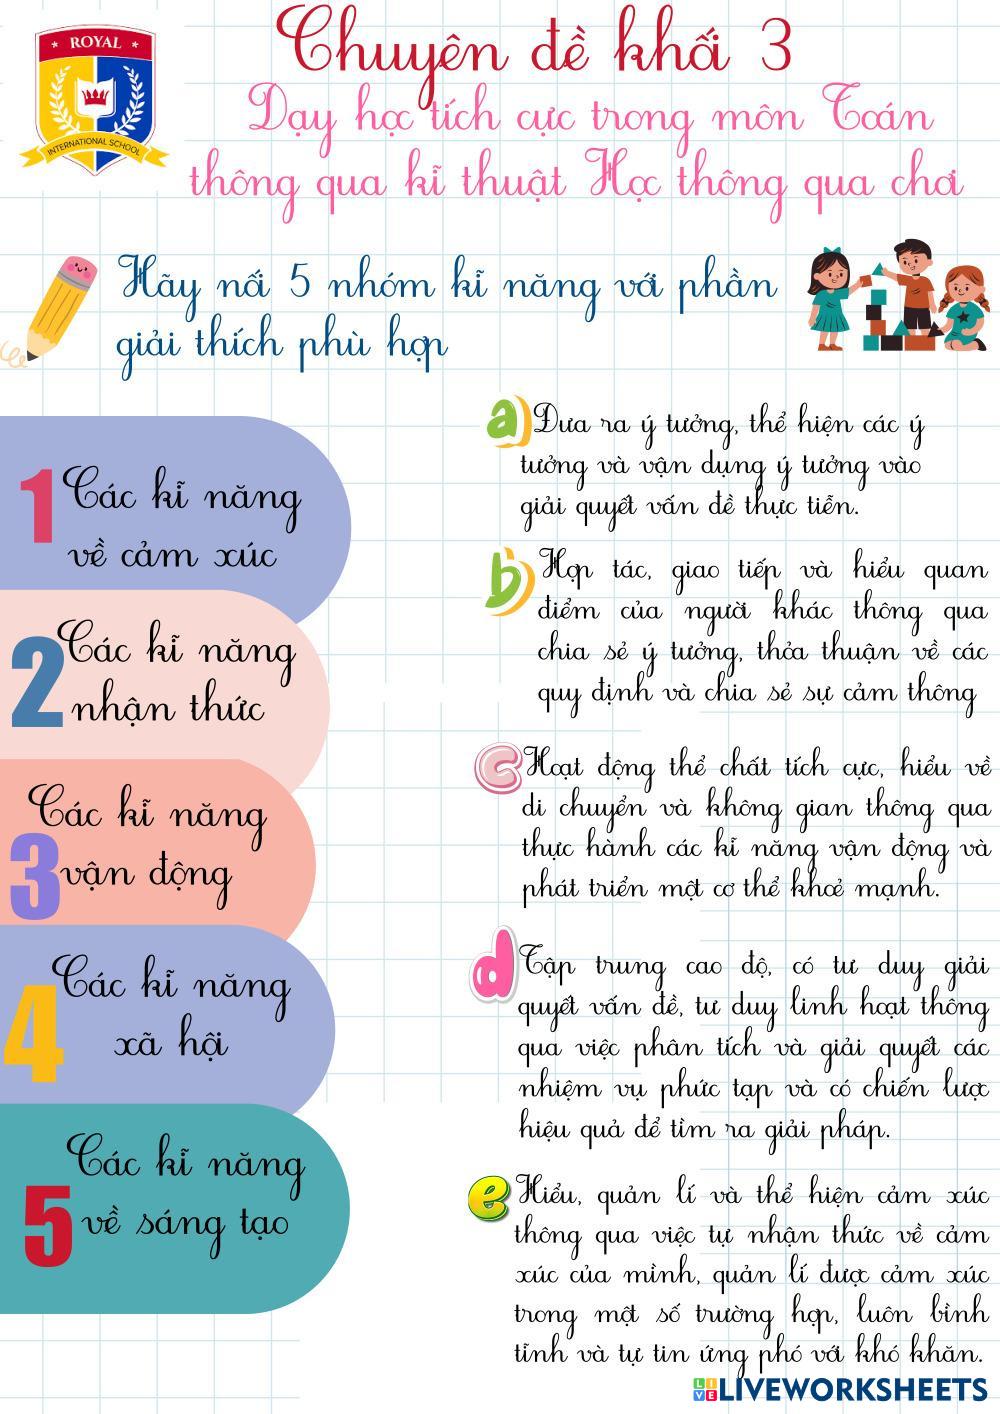 ROYAL
INTERNATIONAL SCHOOL
Chuyên đề khối 3
Dạy học tích cực trong môn Toán
thông qua kĩ thuật Học thông qua chơi
Hãy nối 5 nhóm kĩ năng với phần
giải thích phù hợp
1 Các kĩ năng
về cảm xúc
2 Các kĩ năng
nhận thức
3 Các kĩ năng
vận động
4 Các kĩ năng
xã hội
5 Các kĩ năng
về sáng tạo
a Đưa ra ý tưởng, thể hiện các ý
tưởng và vận dụng ý tưởng vào
giải quyết vấn đề thực tiễn.
b Hợp tác, giao tiếp và hiểu quan
điểm của người khác thông qua
chia sẻ ý tưởng, thỏa thuận về các
quy định và chia sẻ sự cảm thông
c Hoạt động thể chất tích cực, hiểu về
di chuyển và không gian thông qua
thực hành các kĩ năng vận động và
phát triển một cơ thể khoẻ mạnh.
d Tập trung cao độ, có tư duy giải
quyết vấn đề, tư duy linh hoạt thông
qua việc phân tích và giải quyết các
nhiệm vụ phức tạp và có chiến lược
hiệu quả để tìm ra giải pháp.
e Hiểu, quản lí và thể hiện cảm xúc
thông qua việc tự nhận thức về cảm
xúc của mình, quản lí được cảm xúc
trong một số trường hợp, luôn bình
tĩnh và tự tin ứng phó với khó khăn.
LIVEWORKSHEETS